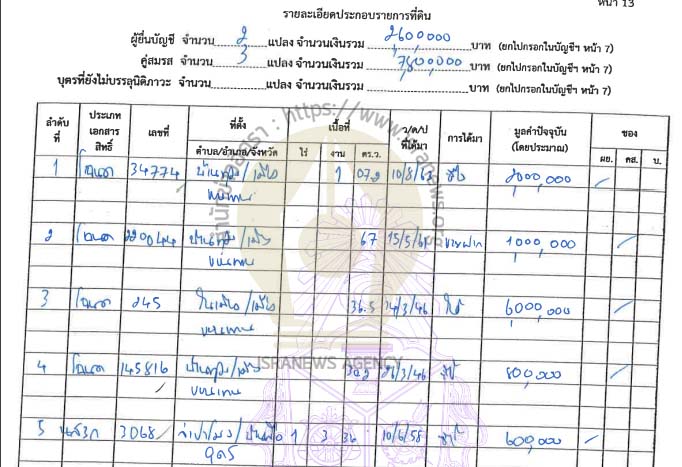 หน้า 13
รายละเอียดประกอบรายการที่ดิน
ผู้ยื่นบัญชี จำนวน 2 แปลง จำนวนเงินรวม 2,600,000 บาท (ยกไปกรอกในบัญชีฯ หน้า 7)
คู่สมรส จำนวน 3 แปลง จำนวนเงินรวม 7,800,000 บาท (ยกไปกรอกในบัญชีฯ หน้า 7)
บุตรที่ยังไม่บรรลุนิติภาวะ จำนวน แปลง จำนวนเงินรวม บาท (ยกไปกรอกในบัญชีฯ หน้า 7)
ลำดับที่ ประเภทเอกสารสิทธิ์ เลขที่ ที่ตั้ง เนื้อที่ ว/ด/ป ที่ได้มา การได้มา มูลค่าปัจจุบัน (โดยประมาณ) ของ
ตำบล/อำเภอ/จังหวัด ไร่ งาน ตร.ว. ผย. คส. บ.
1 โฉนด 34774 1 07.2 10/8/63 2,000,000 /
ขอนแก่น
2 โฉนด 220044 67 15/5/61 ขายฝาก 1,000,000 /
ขอนแก่น
3 โฉนด 245 ในเมือง/เมือง 36.5 24/3/46 ให้ 6,000,000 /
ขอนแก่น
4 โฉนด 145816 800,000 /
ขอนแก่น
5 นส3ก 3068 1 3 36 10/6/58 600,000 /
อุดร
สำนักข่าวอิศรา : https://www.isranews.org
ISRANEWS AGENCY